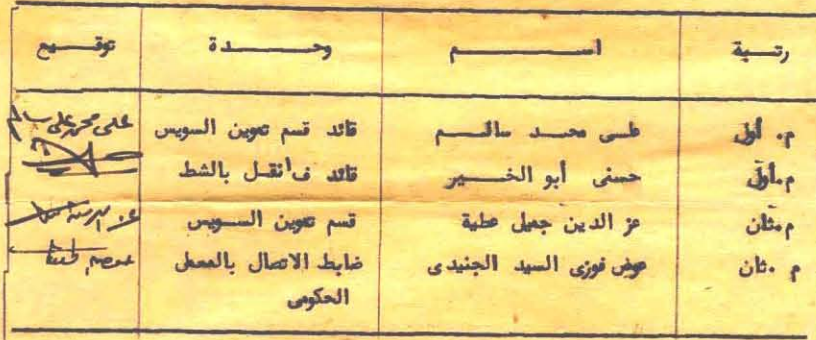 رتبة اسم وحدة توقيع
م. أول على محمد سالم قائد قسم تموين السويس على محمد على سالم
م.أول حسنى أبو الخير قائد ف أنقل بالشط
م.ثان عز الدين جميل عطية قسم تموين السويس
م .ثان عوض فوزى السيد الجنيدى ضابط الاتصال بالمعمل
الحكومى